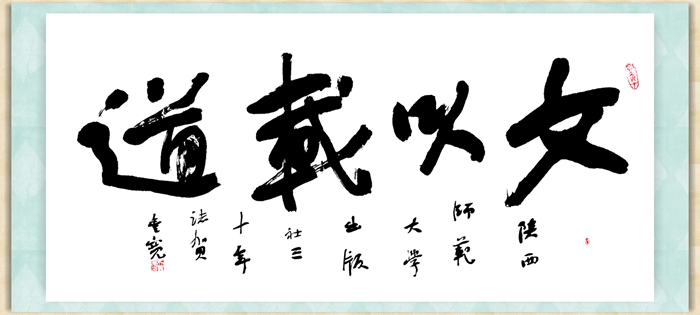 文以載道
陝西
師範
大學
出版
社三
十年
誌賀